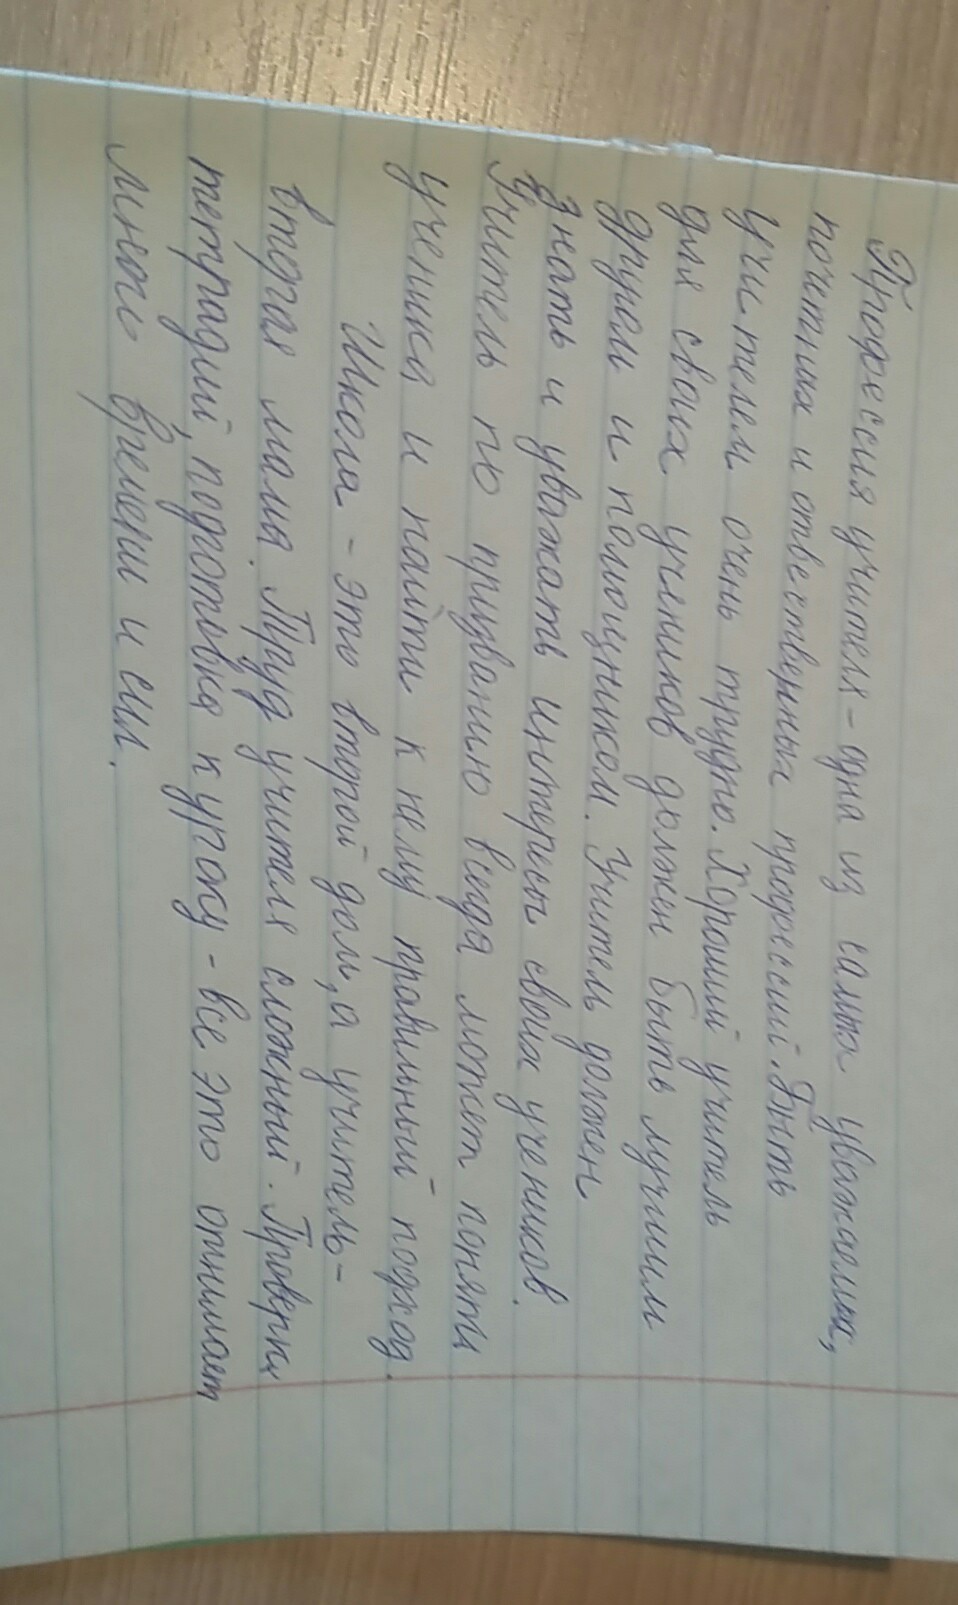 Профессия учителя - одна из самых уважаемых,
почетных и ответственных профессий. Быть
учителем очень трудно. Хороший учитель
для своих учеников должен быть лучшим
другом и помощником. Учитель должен
знать и уважать интересы своих учеников.
Учитель по призванию всегда может понять
ученика и найти к нему правильный подход.
Школа - это второй дом, а учитель -
вторая мама. Труд учителя сложный. Проверки
тетрадий, подготовка к уроку - все это отнимает
много времени и сил.